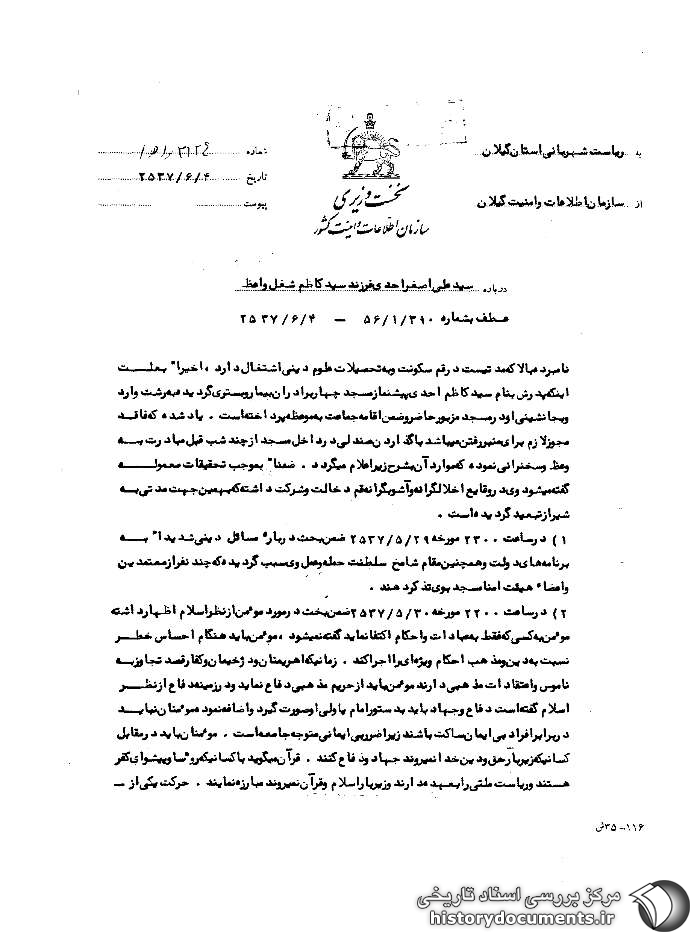 به ریاست شهربانی استان گیلان
از سازمان اطلاعات و امنیت گیلان
نخست وزیری
سازمان اطلاعات و امنیت کشور
شماره
تاریخ ۲۵۳۷/۶/۴
پیوست
درباره سید علی اصغر احدی فرزند سید کاظم شغل واعظ
عطف بشماره ۵۶/۱/۳۹۰ — ۲۵۳۷/۶/۴
نامبرده بالا که مدتیست در قم سکونت و به تحصیلات علوم دینی اشتغال دارد ، اخیرا" بعلت
اینکه پدرش بنام سید کاظم احدی پیشنماز مسجد چهاربرادران بیمار و بستری گردیده به رشت وارد
و بجانشینی او در مسجد مزبور حاضر و ضمن اقامه جماعت به موعظه پرداخته است . یاد شده که فاقد
مجوز لازم برای منبر رفتن میباشد با گذاردن صندلی در داخل مسجد از چند شب قبل مبادرت به
وعظ و سخنرانی نموده که موارد آن بشرح زیر اعلام میگردد . ضمنا" بموجب تحقیقات معموله
گفته میشود وی در وقایع اخلالگرانه و آشوبگرانه قم دخالت و شرکت داشته که بهمین جهت مدتی به
شیراز تبعید گردیده است .
۱ ) در ساعت ۲۳۰۰ مورخه ۲۵۳۷/۵/۲۹ ضمن بحث درباره مسائل دینی شدیدا" به
برنامه های دولت و همچنین مقام شامخ سلطنت حمله و عمل وی سبب گردیده که چند نفر از معتمدین
و اعضاء هیئت امنا مسجد بوی تذکر دهند .
۲ ) در ساعت ۲۲۰۰ مورخه ۲۵۳۷/۵/۳۰ ضمن بحث در مورد موئمن از نظر اسلام اظهار داشته
موئمن به کسی که فقط به عبادات و احکام اکتفا نماید گفته نمیشود ، موئمن باید هنگام احساس خطر
نسبت به دین و مذهب احکام ویژه ای را اجرا کند . زمانیکه اهریمنان و دژخیمان و کفار قصد تجاوز به
ناموس و اعتقادات مذهبی دارند موئمن باید از حریم مذهبی دفاع نماید و در زمینه دفاع از نظر
اسلام گفته است دفاع و جهاد باید به دستور امام یا ولی او صورت گیرد و اضافه نمود موئمنان نباید
در برابر افراد بی ایمان ساکت باشند زیرا ضرر بی ایمانی متوجه جامعه است . موئمنان باید در مقابل
کسانیکه زیر بار حق و دین خدا نمیروند جهاد و دفاع کنند . قرآن میگوید با کسانیکه روئسا و پیشوای کفر
هستند و ریاست ملتی را بعهده دارند و زیر بار اسلام و قرآن نمیروند مبارزه نمایند . حرکت یکی از —
۱۱۶ - ۳۵ش
مرکز بررسی اسناد تاریخی
historydocuments.ir